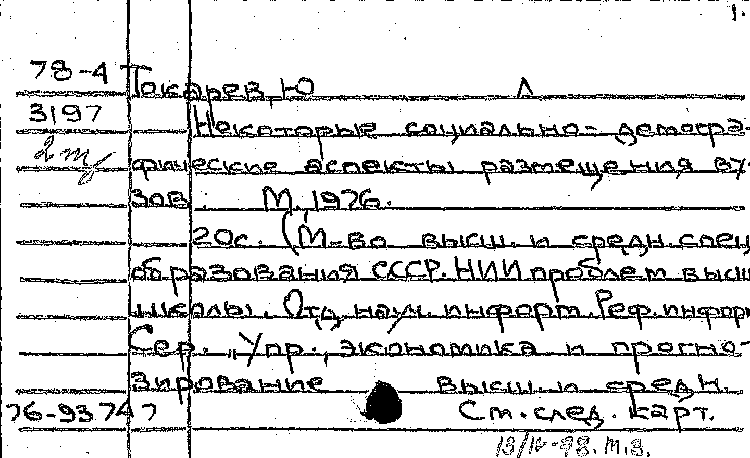 1.
78-4 Токарев, Ю Л
3197 Некоторые социально-демогра-
2 фические аспекты размещения ву-
зов. М., 1976.
20с. (М-во высш. и средн. спец
образования СССР. НИИ проблем высш
школы. Отд. науч. информ. Реф. информ
Сер. „Упр., экономика и прогно-
зирование высш. и средн.
76-93747 См. след. карт.
13/IV-98. М.З.